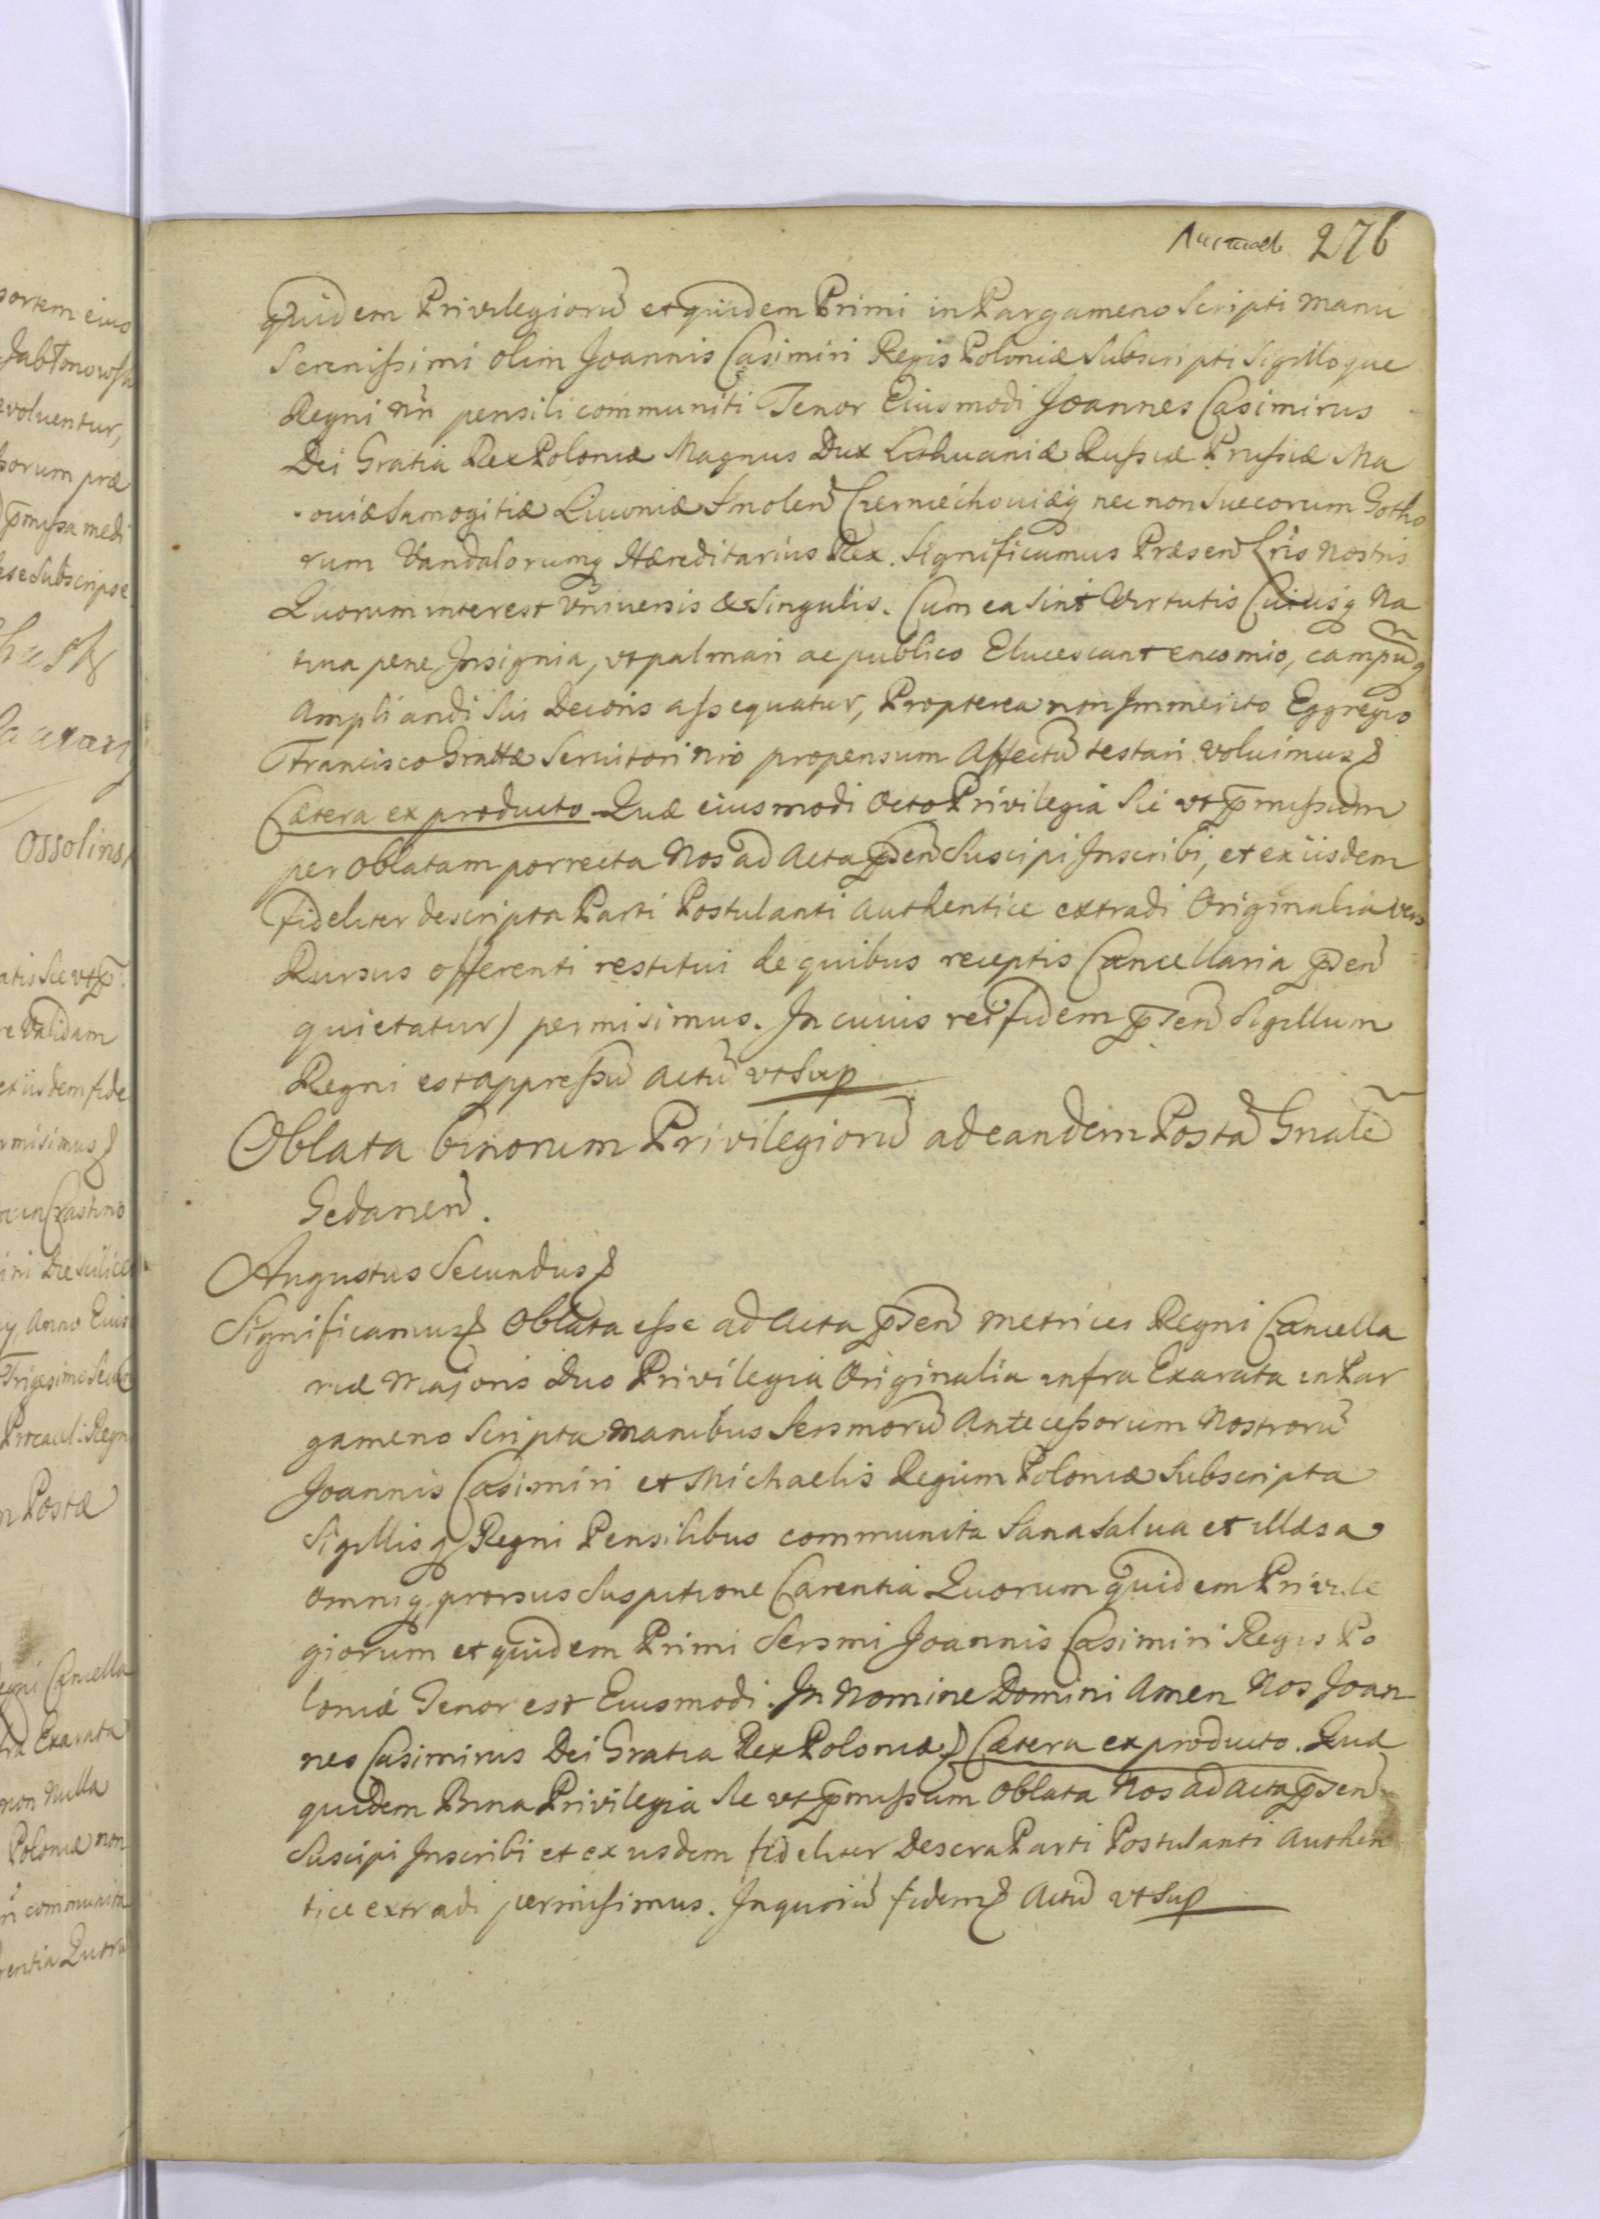 Листовъ 276
quidem Privilegiorũ et quidem Primi in Pargameno Scripti Manu
Serenissimi olim Joannis Casimiri Regis Poloniæ Subscripti Sigilloque
Regni nr̃i pensili communiti Tenor Eiusmodi Joannes Casimirus
Dei Gratia Rex Poloniæ Magnus Dux Lithuaniæ Russiæ Prussiæ Ma
oviæ Samogitiæ Livoniæ Smolen̄ Czerniechoviæq nec non Suecorum Gotho
rum Vandalorumq Hæreditarius Rex. Significamus Præsen̄ Lr̃is Nostris
Quorum interest Vniuersis & Singulis. Cum ea Sint Virtutis Cuiusq Na
tiua pene Insignia, vt palmari ac publico Elucescant encomio, campũq
Ampliandi Sui Decoris assequatur, Propterea non Immerito Eggregio
Francisco Grattæ Seruitori nr̃o propensum Affectũ testari voluimus
Cætera ex producto Quæ eiusmodi Octo Privilegia Sic vt p̄missum
per Oblatam porrecta Nos ad Acta p̄sen̄ Suscipi Inscribi, et ex iisdem
fideliter descripta Parti Postulanti Authentice extradi Originalia vero
Rursus offerenti restitui de quibus receptis Cancellaria p̄sen̄
quietatur) permisimus. In cuius rei fidem p̄sen̄ Sigillum
Regni est appressũ Actũ vt Sup
Oblata binorum Privilegiorũ ad eandem Postã Gnalẽ
Gedanen̄.
Augustus Secundus
Significamus Oblata esse ad Acta p̄sen̄ Metrices Regni Cancella
riæ Majoris Duo Privilegia Originalia infra Exarata in Par
gameno Scripta Manibus Sersmorũ Antecessorum Nostrorũ
Joannis Casimiri et Michaelis Regum Poloniæ Subscripta
Sigillisq Regni Pensilibus communita Sana Salua et illæsa
omniq prorsus Suspitione Carentia Quorum quidem Privile
giorum et quidem Primi Sersmi Joannis Casimiri Regis Po
loniæ Tenor est Eiusmodi. In Nomine Domini Amen Nos Joan
nes Casimirus Dei Gratia Rex Poloniæ Cætera ex producto. Quæ
quidem Bina Privilegia Sic vt p̄missum Oblata Nos ad Acta p̄sen̄
Suscipi Inscribi et ex iisdem fideliter Descra Parti Postulanti Authen
tice extradi permisimus. In quorũ fidem Actũ vt Sup